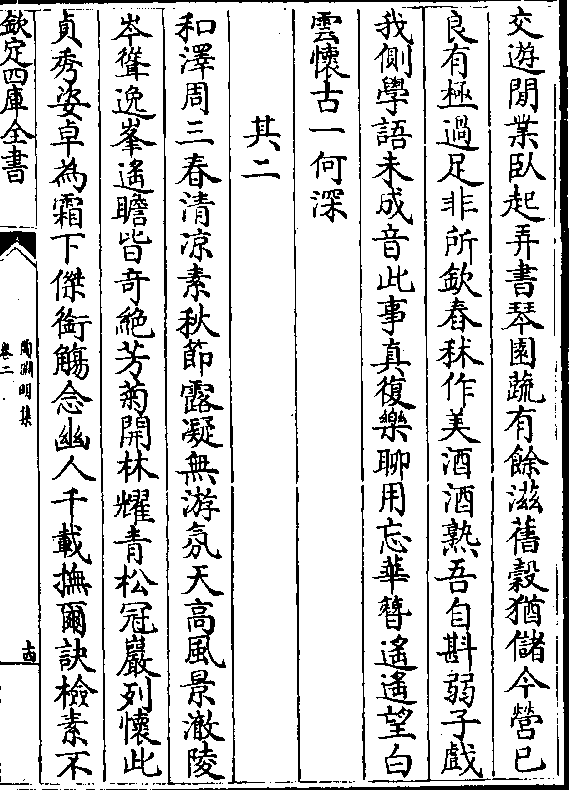 交遊閒業臥起弄書琴園蔬有餘滋舊穀猶儲今營已
良有極過足非所欽舂秫作美酒酒熟吾自斟弱子戲
我側學語未成音此事真復樂聊用忘華簪遙遙望白
雲懷古一何深
其二
和澤周三春清凉素秋節露凝無游氛天高風景澈陵
岑聳逸峯遙瞻皆奇絶芳菊開林耀青松冠巖列懷此
貞秀姿卓為霜下傑銜觴念幽人千載撫爾訣檢素不
欽定四庫全書
陶淵明集
卷二
十四